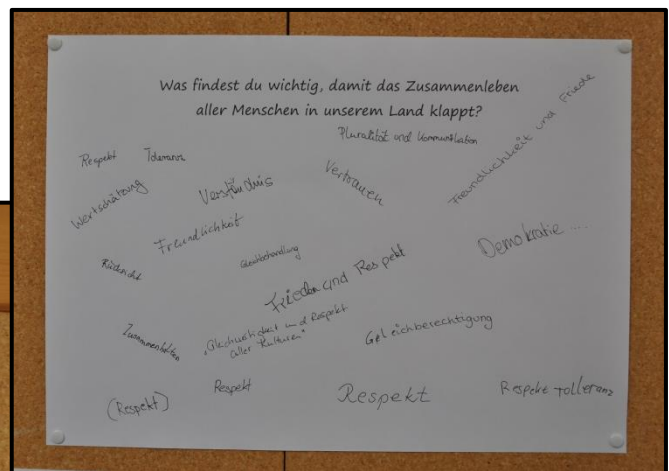 Was findest du wichtig, damit das Zusammenleben
aller Menschen in unserem Land klappt?
Pluralität und Kommunikation
Freundlichkeit und Friede
Respekt
Toleranz
Wertschätzung
Verständnis
Vertrauen
Freundlichkeit
Demokratie ....
Rücksicht
Gleichbehandlung
Frieden und Respekt
Zusammenhalten
„Gleichwertigkeit und Respekt
aller Kulturen"
Geleichberechtigung
(Respekt)
Respekt
Respekt
Respekt Tolleranz